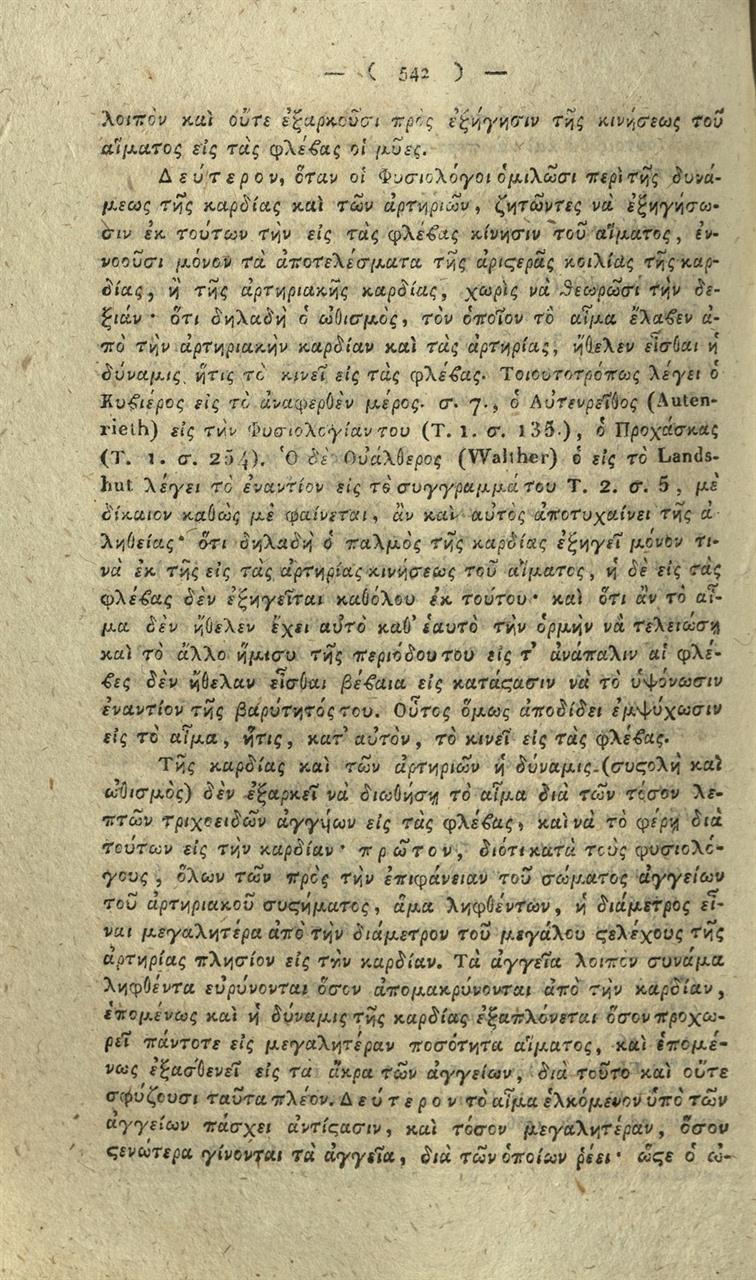 — ( 542 ) —
λοιπὸν καὶ οὔτε ἐξαρκοῦσι πρὸς ἐξήγησιν τῆς κινήσεως τοῦ
αἵματος εἰς τὰς φλέϐας οἱ μῦες.
Δεύτερον, ὅταν οἱ Φυσιολόγοι ὁμιλῶσι περὶ τῆς δυνά-
μεως τῆς καρδίας καὶ τῶν ἀρτηριῶν, ζητῶντες νὰ ἐξηγήσω-
σιν ἐκ τούτων τὴν εἰς τὰς φλέϐας κίνησιν τοῦ αἵματος, ἐν-
νοοῦσι μόνον τὰ ἀποτελέσματα τῆς ἀριϛερᾶς κοιλίας τῆς καρ-
δίας, ἢ τῆς ἀρτηριακῆς καρδίας, χωρὶς νὰ θεωρῶσι τὴν δε-
ξιάν· ὅτι δηλαδὴ ὁ ὠθισμὸς, τὸν ὁποῖον τὸ αἷμα ἔλαβεν ἀ-
πὸ τὴν ἀρτηριακὴν καρδίαν καὶ τὰς ἀρτηρίας, ἤθελεν εἶσθαι ἡ
δύναμις, ἥτις τὸ κινεῖ εἰς τὰς φλέϐας. Τοιουτοτρόπως λέγει ὁ
Κυϐιέρος εἰς τὸ ἀναφερθὲν μέρος. σ. 7., ὁ Αὐτενρεῖθος (Auten-
rieth) εἰς τὴν Φυσιολογίαν του (Τ. 1. σ. 135.), ὁ Προχάσκας
(Τ. 1. σ. 254). Ὁ δὲ Οὐάλθερος (Walther) ὁ εἰς τὸ Lands-
hut λέγει τὸ ἐναντίον εἰς τὸ συγγραμμά του Τ. 2. σ. 5, μὲ
δίκαιον καθὼς μὲ φαίνεται, ἂν καὶ αὐτὸς ἀποτυχαίνει τῆς ἀ-
ληθείας· ὅτι δηλαδὴ ὁ παλμὸς τῆς καρδίας ἐξηγεῖ μόνον τι-
νὰ ἐκ τῆς εἰς τὰς ἀρτηρίας κινήσεως τοῦ αἵματος, ἡ δὲ εἰς τὰς
φλέϐας δὲν ἐξηγεῖται καθόλου ἐκ τούτου· καὶ ὅτι ἂν τὸ αἷ-
μα δὲν ἤθελεν ἔχει αὐτὸ καθ' ἑαυτὸ τὴν ὁρμὴν νὰ τελειώσῃ
καὶ τὸ ἄλλο ἥμισυ τῆς περιόδου του εἰς τ' ἀνάπαλιν αἱ φλέ-
ϐες δὲν ἤθελαν εἶσθαι βέϐαια εἰς κατάϛασιν νὰ τὸ ὑψόνωσιν
ἐναντίον τῆς βαρύτητός του. Οὗτος ὅμως ἀποδίδει ἐμψύχωσιν
εἰς τὸ αἷμα, ἥτις, κατ' αὐτὸν, τὸ κινεῖ εἰς τὰς φλέϐας.
Τῆς καρδίας καὶ τῶν ἀρτηριῶν ἡ δύναμις (συϛολὴ καὶ
ὠθισμὸς) δὲν ἐξαρκεῖ νὰ διωθήσῃ τὸ αἷμα διὰ τῶν τόσον λε-
πτῶν τριχοειδῶν ἀγγήων εἰς τὰς φλέϐας, καὶ νὰ τὸ φέρῃ διὰ
τούτων εἰς τὴν καρδίαν· πρῶτον, διότι κατὰ τοὺς φυσιολό-
γους, ὅλων τῶν πρὸς τὴν ἐπιφάνειαν τοῦ σώματος ἀγγείων
τοῦ ἀρτηριακοῦ συϛήματος, ἅμα ληφθέντων, ἡ διάμετρος εἶ-
ναι μεγαλητέρα ἀπὸ τὴν διάμετρον τοῦ μεγάλου ϛελέχους τῆς
ἀρτηρίας πλησίον εἰς τὴν καρδίαν. Τὰ ἀγγεῖα λοιπὸν συνάμα
ληφθέντα εὐρύνονται ὅσον ἀπομακρύνονται ἀπὸ τὴν καρδίαν,
ἑπομένως καὶ ἡ δύναμις τῆς καρδίας ἐξαπλόνεται ὅσον προχω-
ρεῖ πάντοτε εἰς μεγαλητέραν ποσότητα αἵματος, καὶ ἑπομέ-
νως ἐξασθενεῖ εἰς τὰ ἄκρα τῶν ἀγγείων, διὰ τοῦτο καὶ οὔτε
σφύζουσι ταῦτα πλέον. Δεύτερον τὸ αἷμα ἑλκόμενον ὑπὸ τῶν
ἀγγείων πάσχει ἀντίϛασιν, καὶ τόσον μεγαλητέραν, ὅσον
ϛενώτερα γίνονται τὰ ἀγγεῖα, διὰ τῶν ὁποίων ῥέει· ὥϛε ὁ ὠ-